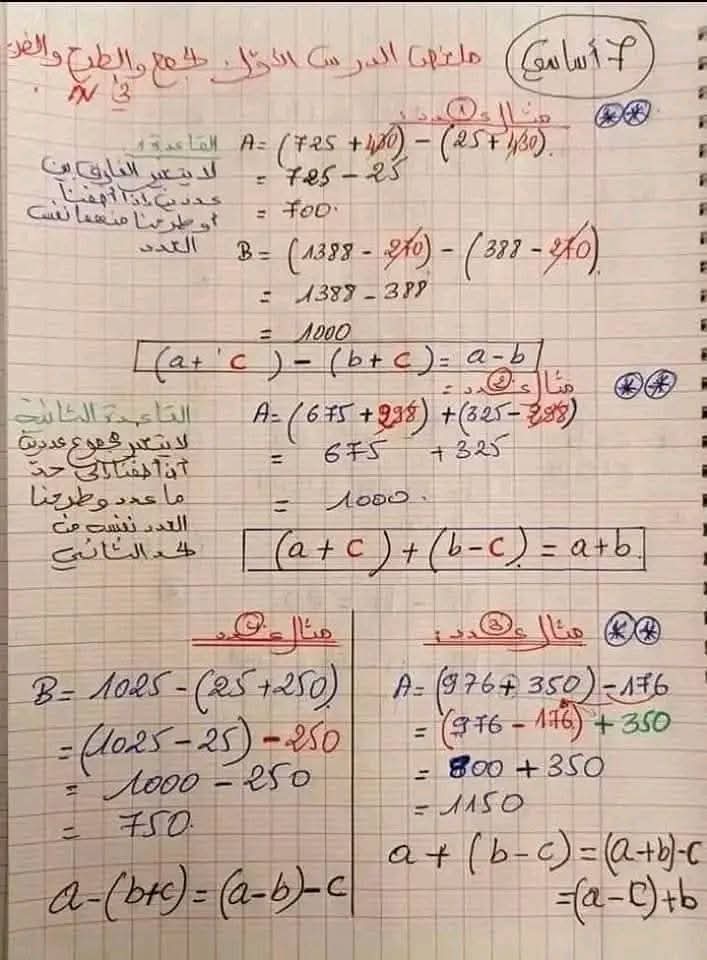 7 أساسي
ملخص الدرس الأول: الجمع والطرح والضرب
في IN
مثال عدد 1:
القاعدة 1
لا يتغير الفارق بين
عددين إذا أضفنا
أو طرحنا منهما نفس
العدد
A = (725 + 430) - (25 + 430)
= 725 - 25
= 700.
B = (1388 - 270) - (388 - 270)
= 1388 - 388
= 1000
(a + c) - (b + c) = a - b
مثال عدد 2:
القاعدة الثانية
لا يتغير مجموع عددين
إذا أضفنا إلى حد
ما عدد وطرحنا
العدد نفسه من
الحد الثاني
A = (675 + 298) + (325 - 298)
= 675 + 325
= 1000.
(a + c) + (b - c) = a + b
مثال عدد 3:
A = (976 + 350) - 176
= (976 - 176) + 350
= 800 + 350
= 1150
a + (b - c) = (a + b) - c
= (a - c) + b
مثال عدد 4
B = 1025 - (25 + 250)
= (1025 - 25) - 250
= 1000 - 250
= 750.
a - (b + c) = (a - b) - c